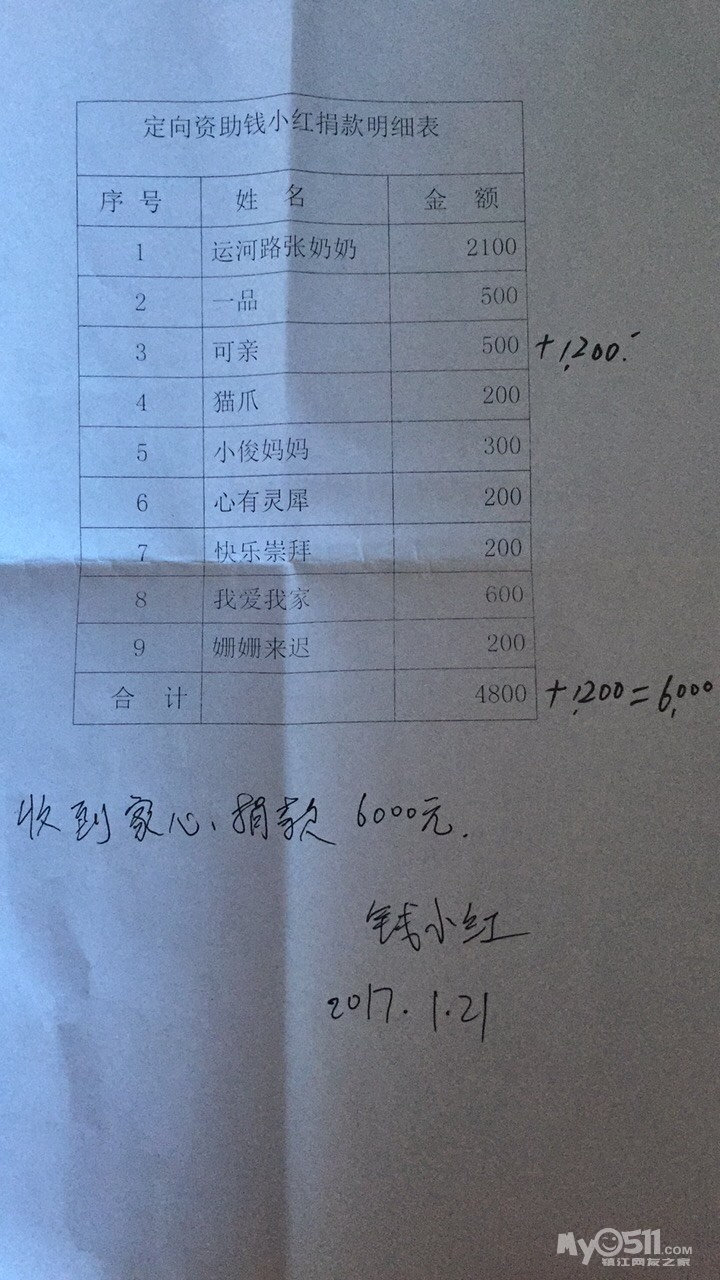 定向资助钱小红捐款明细表
序号 姓名 金额
1 运河路张奶奶 2100
2 一品 500
3 可亲 500 +1,200.-
4 猫爪 200
5 小俊妈妈 300
6 心有灵犀 200
7 快乐崇拜 200
8 我爱我家 600
9 姗姗来迟 200
合计 4800 +1,200=6,000
收到家心、捐款 6000元.
钱小红
2017.1.21
My0511.COM
镇江网友之家